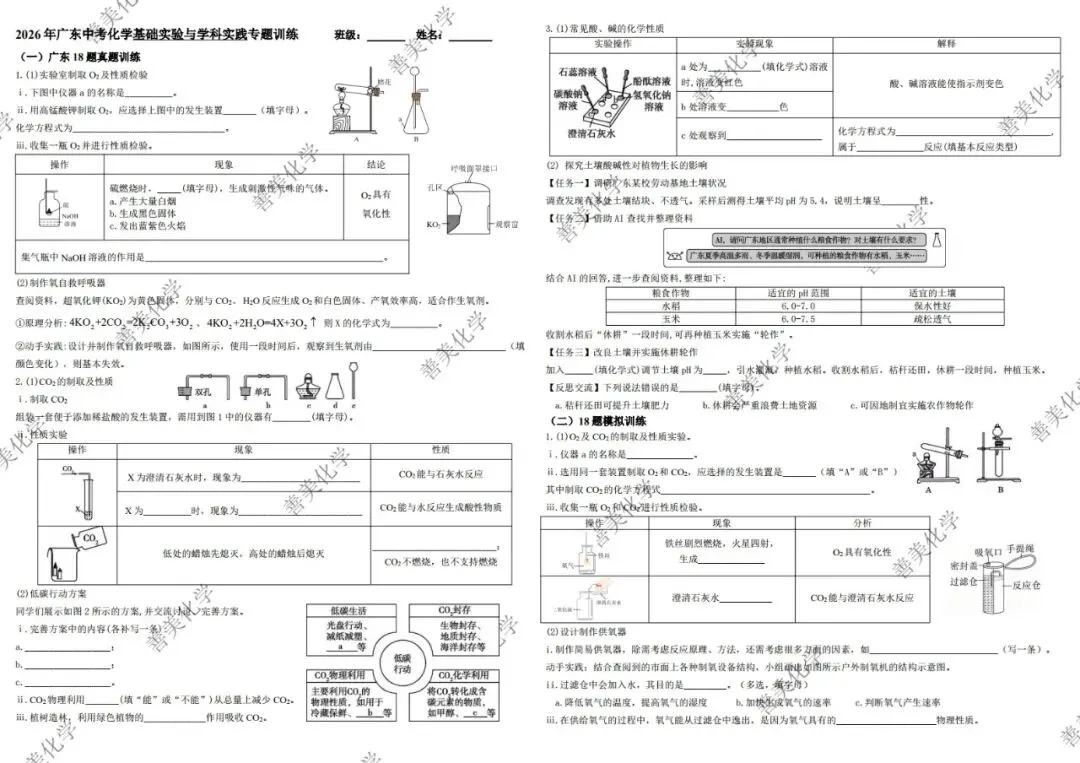 2026年广东中考化学基础实验与学科实践专题训练 班级：______ 姓名：______
（一）广东18题真题训练
1.(1)实验室制取O₂及性质检验
ⅰ.下图中仪器a的名称是______。
ⅱ.用高锰酸钾制取O₂，应选择上图中的发生装置______（填字母）。
化学方程式为______。
棉花
a
A
B
ⅲ.收集一瓶O₂并进行性质检验。
操作 现象 结论
硫
NaOH
溶液
硫燃烧时，____(填字母)，生成刺激性气味的气体。
a.产生大量白烟
b.生成黑色固体
c.发出蓝紫色火焰
O₂具有
氧化性
集气瓶中NaOH溶液的作用是______。
呼吸面罩接口
孔区
KO₂
观察窗
(2)制作氧自救呼吸器
查阅资料，超氧化钾(KO₂)为黄色固体，分别与CO₂、H₂O反应生成O₂和白色固体、产氧效率高，适合作生氧剂。
①原理分析：4KO₂+2CO₂=2K₂CO₃+3O₂、4KO₂+2H₂O=4X+3O₂↑ 则X的化学式为______。
②动手实践:设计并制作氧自救呼吸器，如图所示，使用一段时间后，观察到生氧剂由______（填
颜色变化），则基本失效。
2.(1)CO₂的制取及性质
ⅰ.制取CO₂
双孔
单孔
a b c d e
组装一套便于添加稀盐酸的发生装置，需用到图1中的仪器有______(填字母)。
ⅱ.性质实验
操作 现象 性质
CO₂
X
X为澄清石灰水时，现象为______ CO₂能与石灰水反应
X为______时，现象为______ CO₂能与水反应生成酸性物质
CO₂
低处的蜡烛先熄灭，高处的蜡烛后熄灭
______；
CO₂不燃烧，也不支持燃烧
(2)低碳行动方案
同学们展示如图2所示的方案,并交流讨论、完善方案。
ⅰ.完善方案中的内容(各补写一条)
a.______；
b.______；
c.______。
ⅱ.CO₂物理利用______(填“能”或“不能”)从总量上减少CO₂。
ⅲ.植树造林，利用绿色植物的______作用吸收CO₂。
低碳生活
光盘行动、
减纸减塑、
a 等
CO₂封存
生物封存、
地质封存、
海洋封存等
低碳
行动
CO₂物理利用
主要利用CO₂的
物理性质，如用于
冷藏保鲜、b 等
CO₂化学利用
将CO₂转化成含
碳元素的物质，
如甲醇、c 等
3.(1)常见酸、碱的化学性质
实验操作 实验现象 解释
石蕊溶液
碳酸钠
溶液
酚酞溶液
氢氧化钠
溶液
澄清石灰水
a处为______(填化学式)溶液
时,溶液变红色
b处溶液变______色
酸、碱溶液能使指示剂变色
c处观察到______
化学方程式为______，
属于______反应(填基本反应类型)
(2) 探究土壤酸碱性对植物生长的影响
【任务一】调研广东某校劳动基地土壤状况
调查发现有多处土壤结块、不透气。采样后测得土壤平均pH为5.4，说明土壤呈______性。
【任务二】借助AI查找并整理资料
AI，请问广东地区适常种植什么粮食作物？对土壤有什么要求？
广东夏季高温多雨、冬季温暖湿润，可种植的粮食作物有水稻、玉米……
结合AI的回答,进一步查阅资料,整理如下:
粮食作物 适宜的pH范围 适宜的土壤
水稻 6.0-7.0 保水性好
玉米 6.0-7.5 疏松透气
收割水稻后“休耕”一段时间,可再种植玉米实施“轮作”。
【任务三】改良土壤并实施休耕轮作
加入______(填化学式)调节土壤pH为____，引水灌溉，种植水稻。收割水稻后，秸秆还田，休耕一段时间，种植玉米。
【反思交流】下列说法错误的是______(填字母)。
a.秸秆还田可提升土壤肥力 b.休耕会严重浪费土地资源 c.可因地制宜实施农作物轮作
（二）18题模拟训练
1.(1)O₂及CO₂的制取及性质实验。
ⅰ.仪器a的名称是______。
ⅱ.选用同一套装置制取O₂和CO₂，应选择的发生装置是______（填“A”或“B”）
其中制取CO₂的化学方程式______。
a
A
B
ⅲ.收集一瓶O₂和CO₂进行性质检验。
操作 现象 分析
铁丝
氧气
铁丝剧烈燃烧，火星四射，
生成______
O₂具有氧化性
二氧化碳
澄清石灰水
澄清石灰水______ CO₂能与澄清石灰水反应
吸氧口
手提绳
密封盖
过滤仓
反应仓
(2)设计制作供氧器
ⅰ.制作简易供氧器，除需考虑反应原理、方法，还需考虑很多方面的因素，如______（写一条）。
动手实践：结合查阅到的市面上各种制氧设备结构，小组画出如图所示户外制氧机的结构示意图。
ⅱ.过滤仓中会加入水，其目的是______。（多选，填字母）
a.降低氧气的温度，提高氧气的湿度 b.加快生成氧气的速率 c.判断氧气产生速率
ⅲ.在供给氧气的过程中，氧气能从过滤仓中逸出，是因为氧气具有的______物理性质。
善美化学